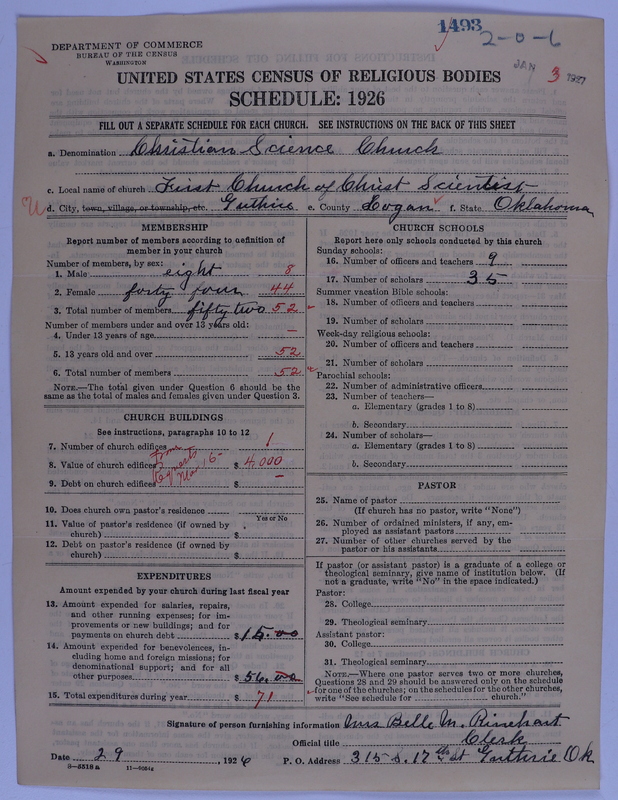 1493
2-0-6
DEPARTMENT OF COMMERCE
BUREAU OF THE CENSUS
WASHINGTON
JAN 3 1927
UNITED STATES CENSUS OF RELIGIOUS BODIES
SCHEDULE: 1926
FILL OUT A SEPARATE SCHEDULE FOR EACH CHURCH. SEE INSTRUCTIONS ON THE BACK OF THIS SHEET
a. Denomination Christian Science Church
c. Local name of church First Church of Christ Scientist
d. City, town, village, or township, etc. Guthrie e. County Logan f. State Oklahoma
MEMBERSHIP
Report number of members according to definition of
member in your church
Number of members, by sex:
1. Male eight 8
2. Female forty four 44
3. Total number of members fifty two 52
Number of members under and over 13 years old:
4. Under 13 years of age —
5. 13 years old and over 52
6. Total number of members 52
NOTE.—The total given under Question 6 should be the
same as the total of males and females given under Question 3.
CHURCH BUILDINGS
See instructions, paragraphs 10 to 12
7. Number of church edifices 1
8. Value of church edifices $ 4,000
9. Debt on church edifices $ —
10. Does church own pastor's residence
Yes or No
11. Value of pastor's residence (if owned by
church) $
12. Debt on pastor's residence (if owned by
church) $
EXPENDITURES
Amount expended by your church during last fiscal year
13. Amount expended for salaries, repairs,
and other running expenses; for im-
provements or new buildings; and for
payments on church debt $ 15.00
14. Amount expended for benevolences, in-
cluding home and foreign missions; for
denominational support; and for all
other purposes $ 56.00
15. Total expenditures during year $ 71
CHURCH SCHOOLS
Report here only schools conducted by this church
Sunday schools:
16. Number of officers and teachers 9
17. Number of scholars 35
Summer vacation Bible schools:
18. Number of officers and teachers
19. Number of scholars
Week-day religious schools:
20. Number of officers and teachers
21. Number of scholars
Parochial schools:
22. Number of administrative officers
23. Number of teachers—
a. Elementary (grades 1 to 8)
b. Secondary
24. Number of scholars—
a. Elementary (grades 1 to 8)
b. Secondary
PASTOR
25. Name of pastor
(If church has no pastor, write "None")
26. Number of ordained ministers, if any, em-
ployed as assistant pastors
27. Number of other churches served by the
pastor or his assistants
If pastor (or assistant pastor) is a graduate of a college or
theological seminary, give name of institution below. (If
not a graduate, write "No" in the space indicated.)
Pastor:
28. College
29. Theological seminary
Assistant pastor:
30. College
31. Theological seminary
NOTE.—Where one pastor serves two or more churches,
Questions 28 and 29 should be answered only on the schedule
for one of the churches; on the schedules for the other churches,
write "See schedule for church."
Signature of person furnishing information Mrs Belle M. Rinehart
Official title Clerk
Date 29, 1926 P. O. Address 315 S. 17th st Guthrie Ok
8—5518 a 11—9054